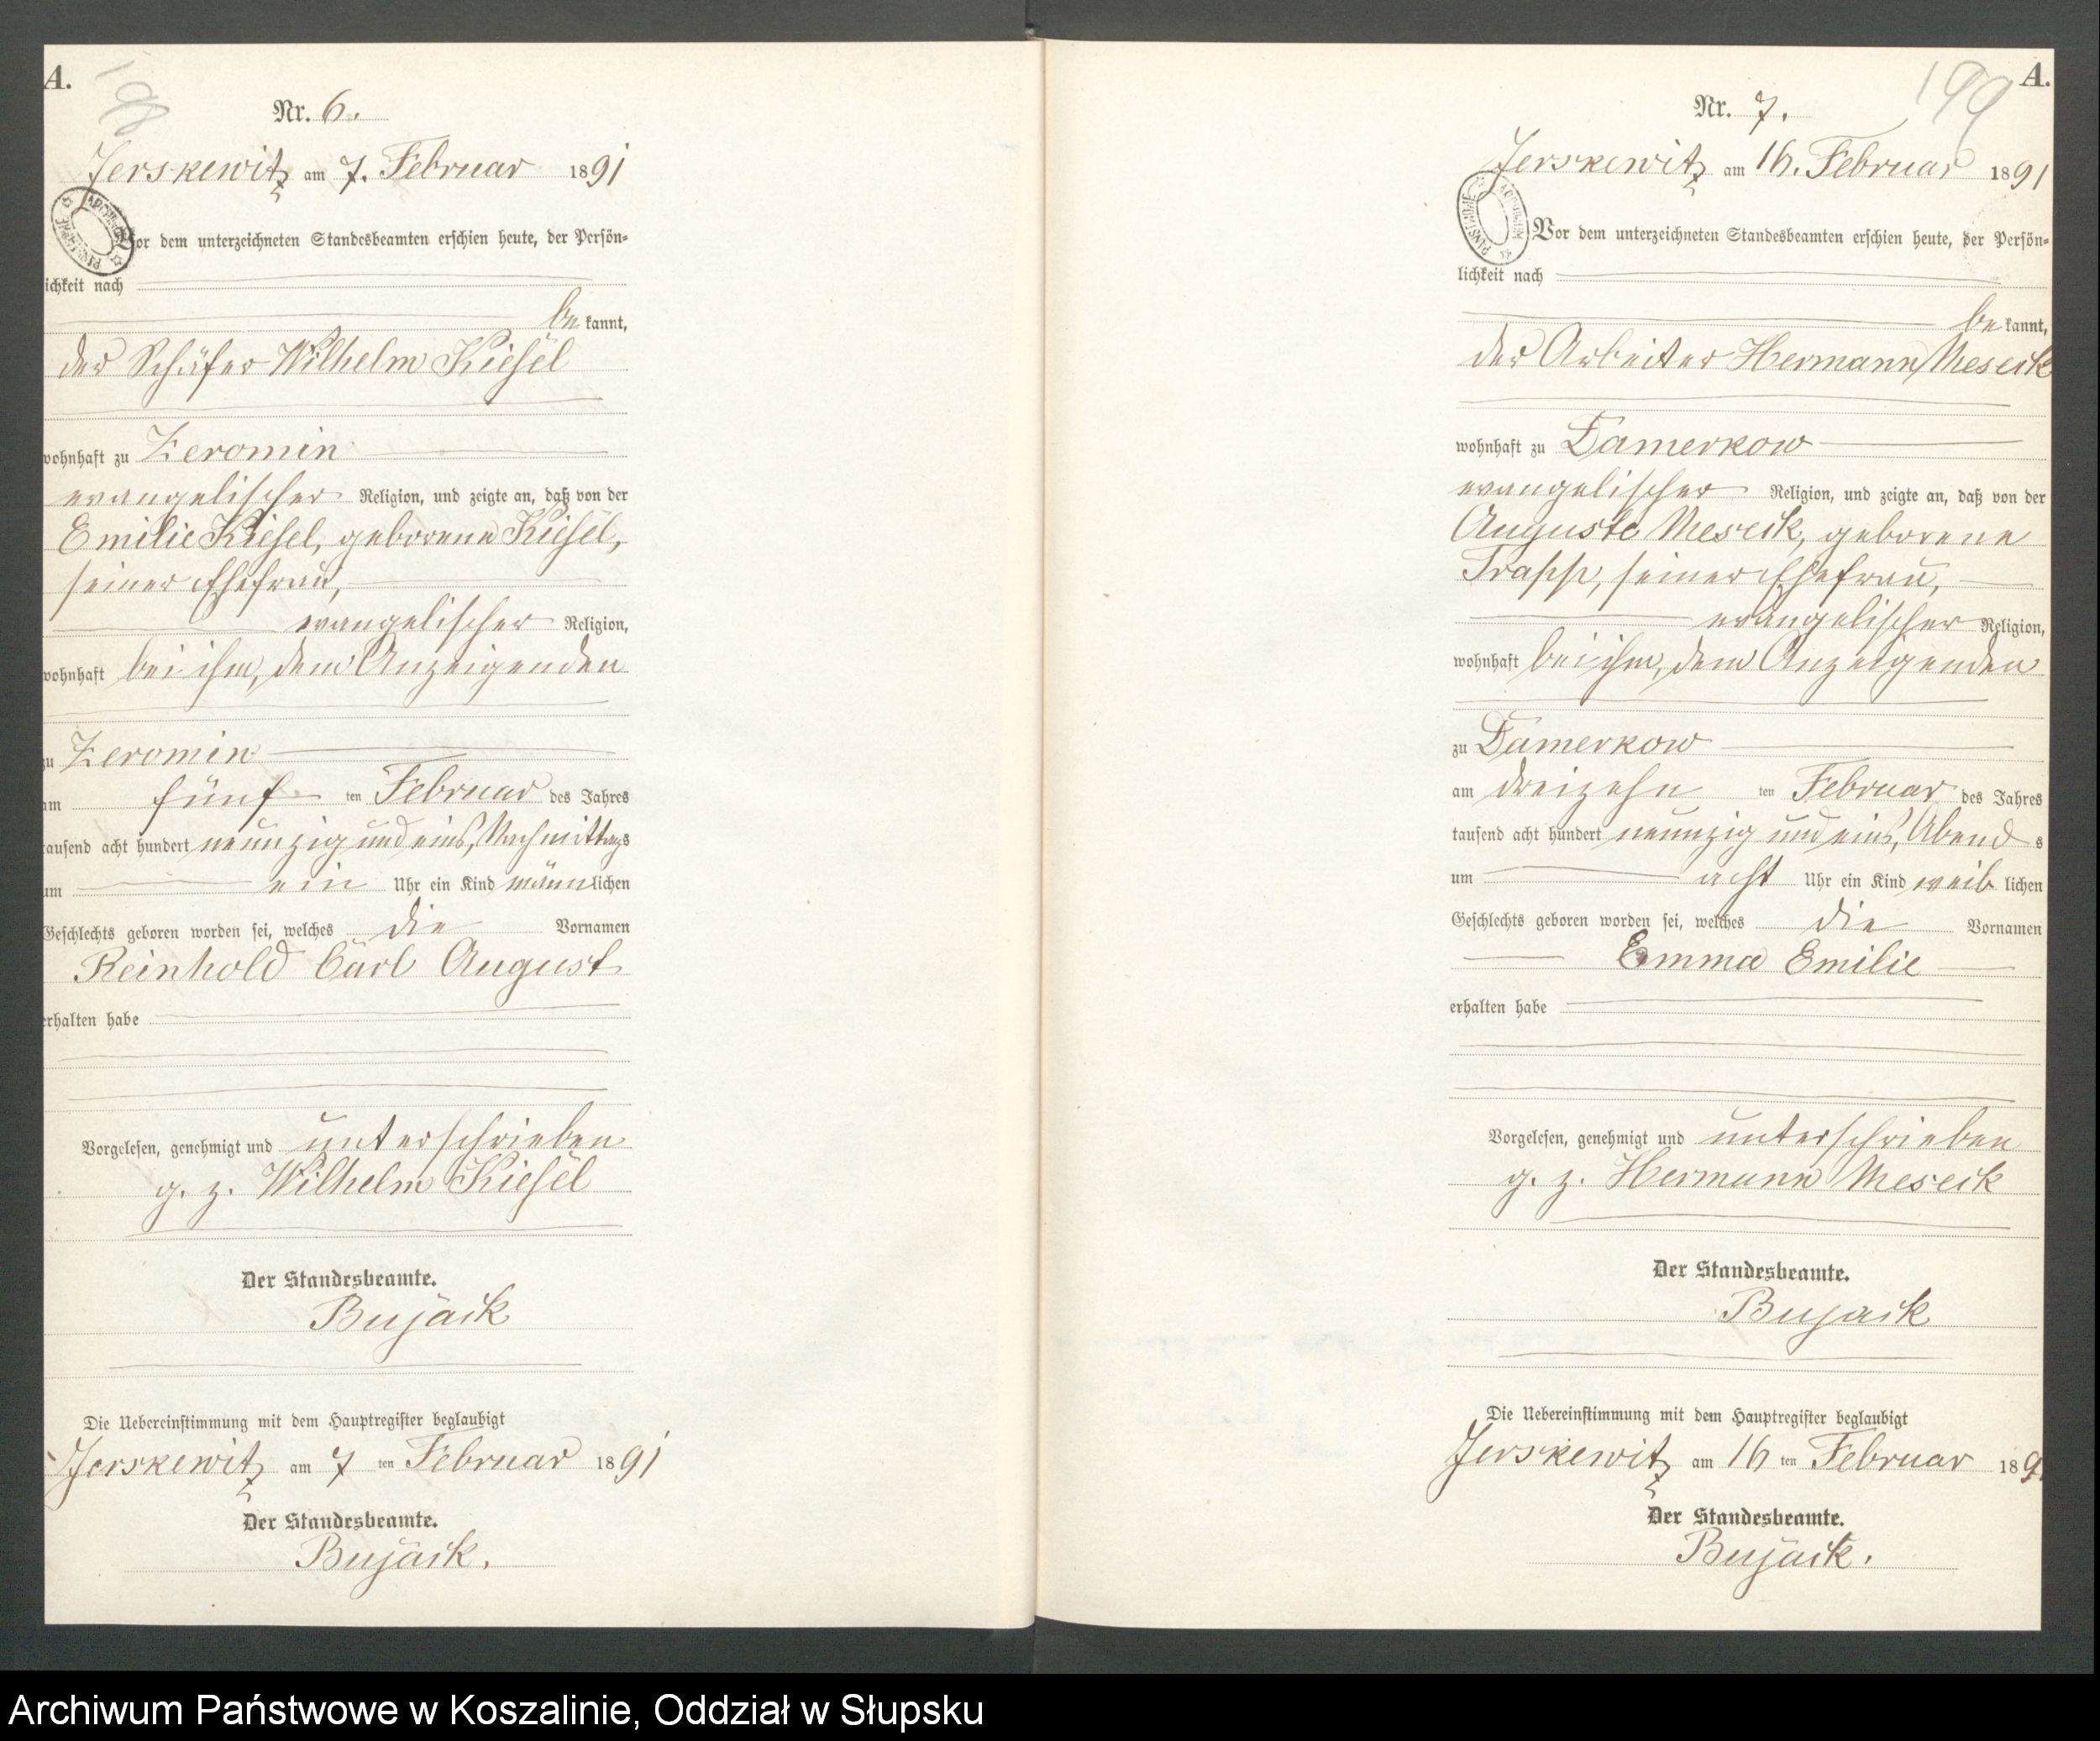 A.
198
Nr. 6.
Jerskewitz am 7. Februar 1891
Vor dem unterzeichneten Standesbeamten erschien heute, der Persön-
lichkeit nach
be kannt,
der Schäfer Wilhelm Kiesel
wohnhaft zu Zeromin
evangelischer Religion, und zeigte an, daß von der
Emilie Kiesel, geborene Kiesel,
seiner Ehefrau,
evangelischer Religion,
wohnhaft bei ihm, dem Anzeigenden
zu Zeromin
am fünf ten Februar des Jahres
tausend acht hundert neunzig und eins, Nachmittags
um ein Uhr ein Kind männlichen
Geschlechts geboren worden sei, welches die Vornamen
Reinhold Carl August
erhalten habe
Vorgelesen, genehmigt und unterschrieben
g. z. Wilhelm Kiesel
Der Standesbeamte.
Bujack
Die Uebereinstimmung mit dem Hauptregister beglaubigt
Jerskewitz am 7 ten Februar 1891
Der Standesbeamte.
Bujack.
199
A.
Nr. 7.
Jerskewitz am 16. Februar 1891
Vor dem unterzeichneten Standesbeamten erschien heute, der Persön-
lichkeit nach
be kannt,
der Arbeiter Hermann Meseck
wohnhaft zu Damerkow
evangelischer Religion, und zeigte an, daß von der
Auguste Meseck, geborene
Trapp, seiner Ehefrau,
evangelischer Religion,
wohnhaft bei ihm, dem Anzeigenden
zu Damerkow
am dreizehn ten Februar des Jahres
tausend acht hundert neunzig und eins, Abend s
um acht Uhr ein Kind weib lichen
Geschlechts geboren worden sei, welches die Vornamen
Emma Emilie
erhalten habe
Vorgelesen, genehmigt und unterschrieben
g. z. Hermann Meseck
Der Standesbeamte.
Bujack
Die Uebereinstimmung mit dem Hauptregister beglaubigt
Jerskewitz am 16 ten Februar 189
Der Standesbeamte.
Bujack.
Archiwum Państwowe w Koszalinie, Oddział w Słupsku